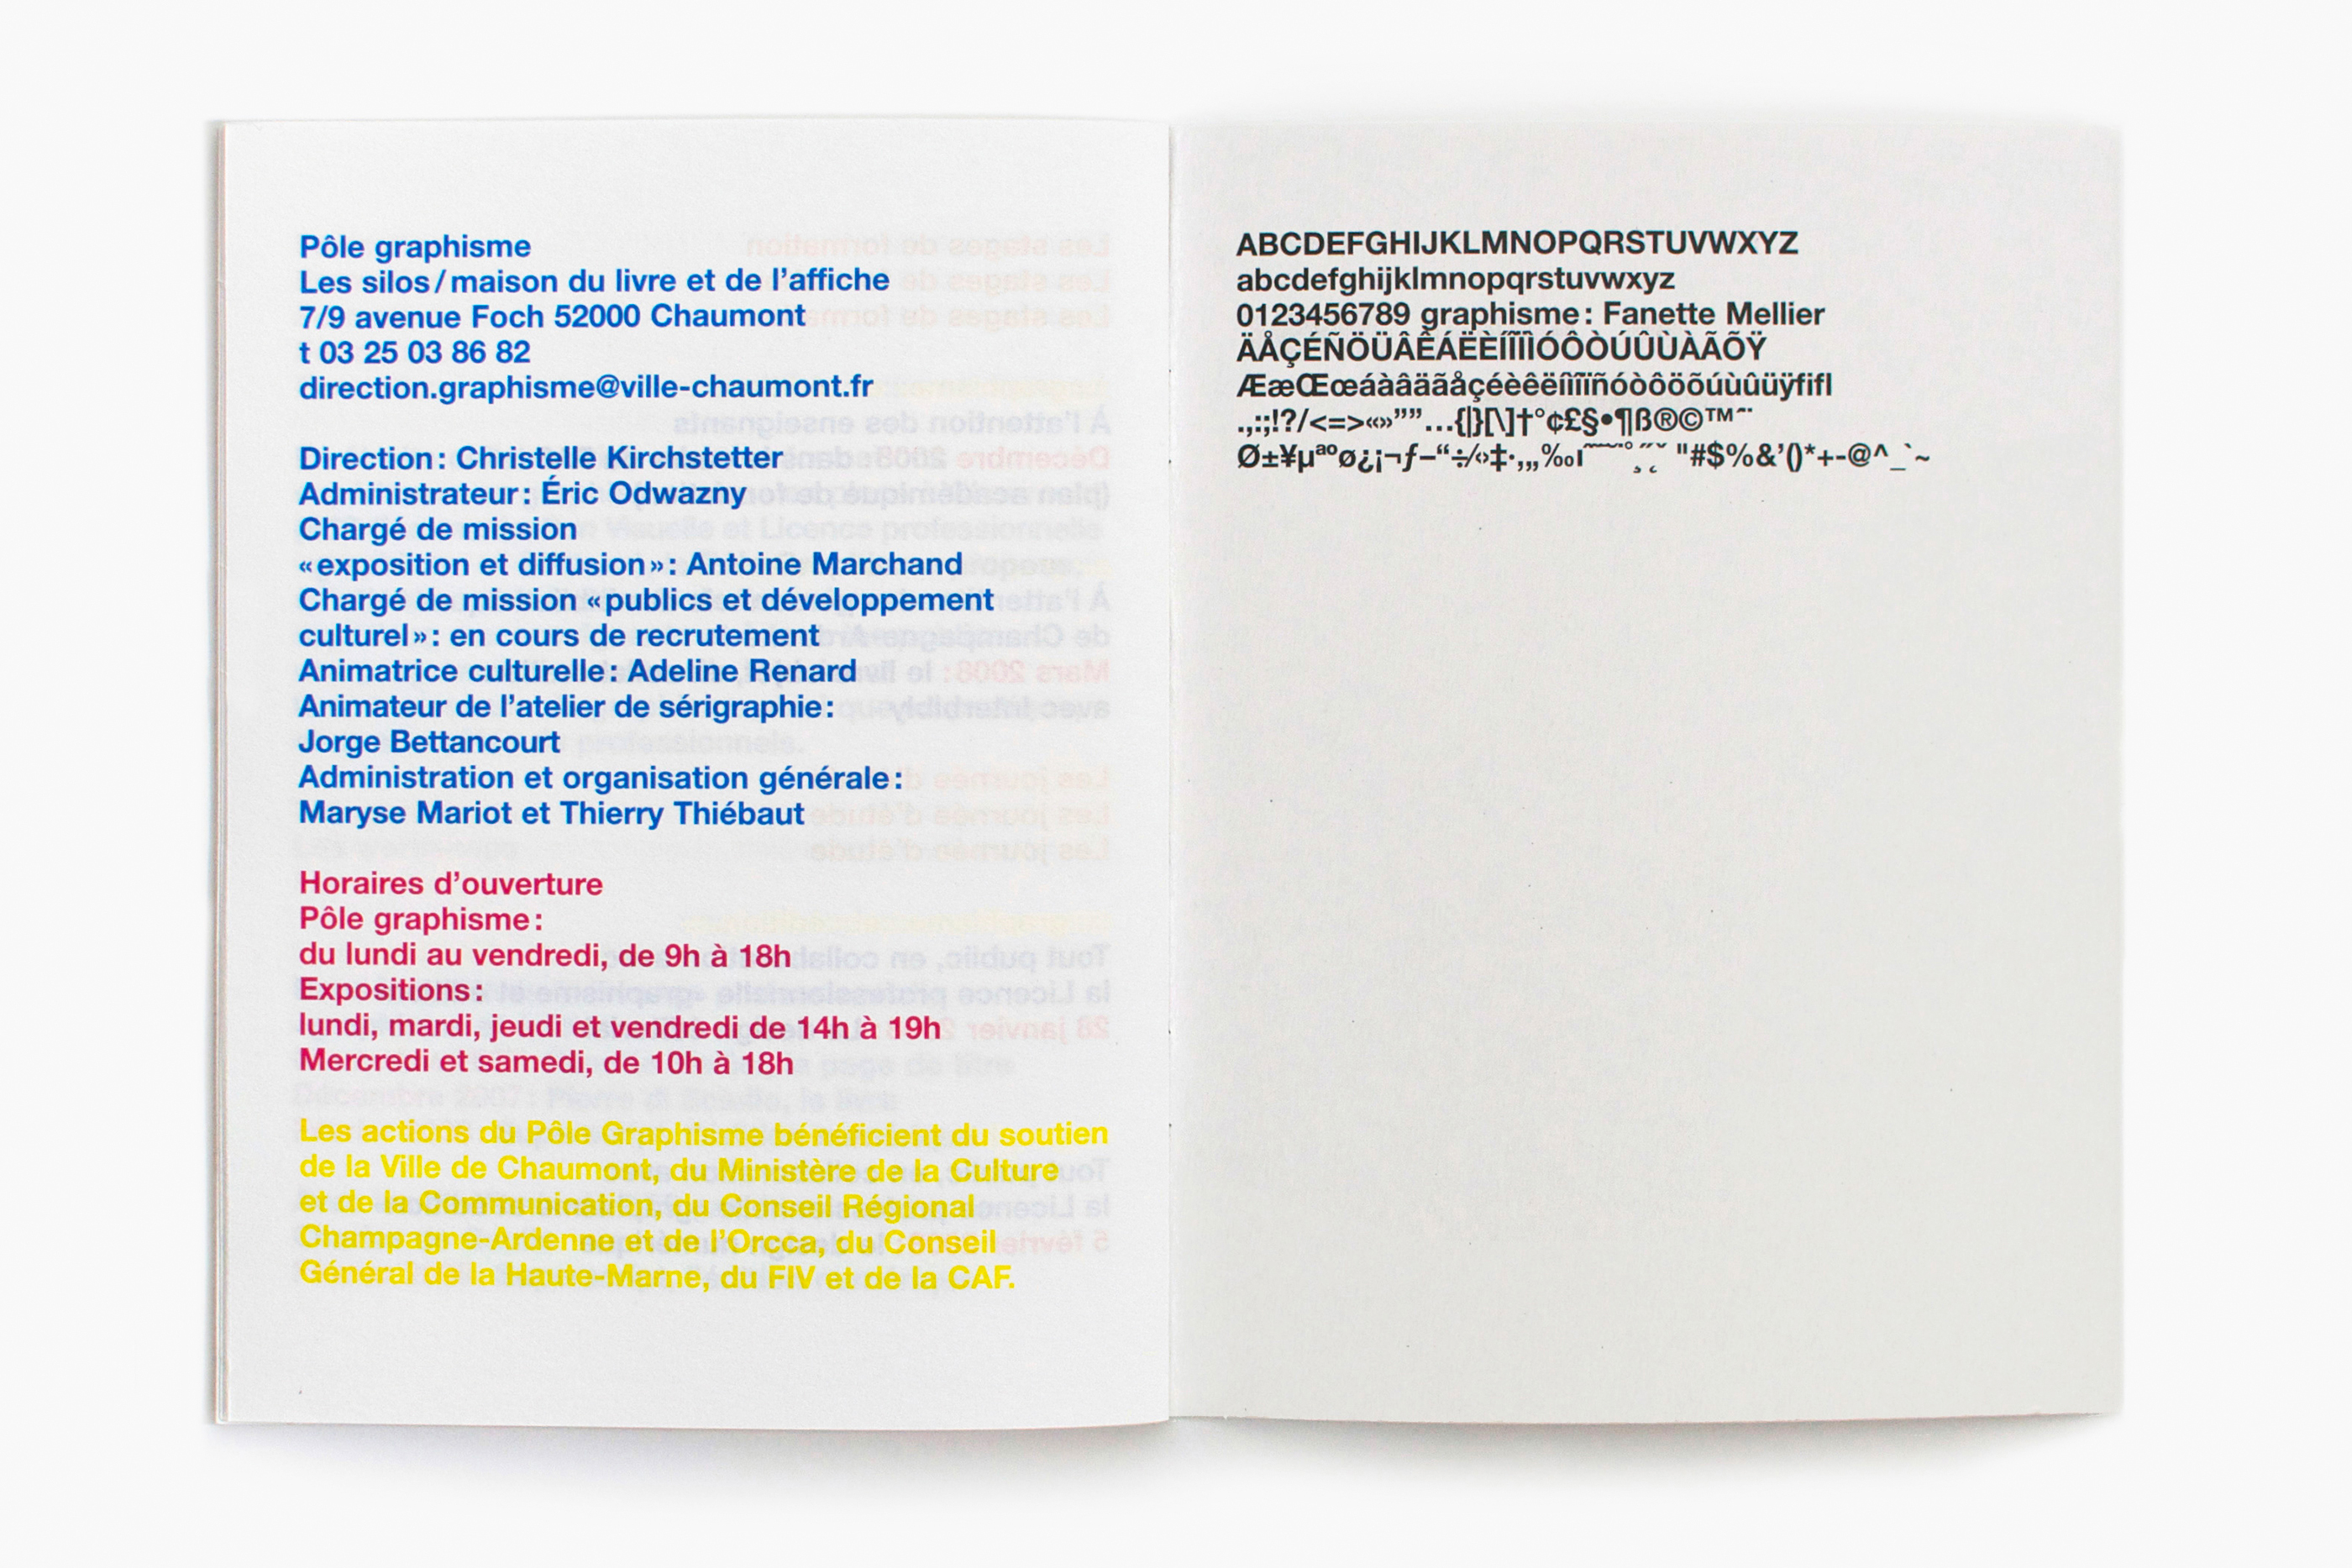 Pôle graphisme
Les silos / maison du livre et de l’affiche
7/9 avenue Foch 52000 Chaumont
t 03 25 03 86 82
direction.graphisme@ville-chaumont.fr
Direction : Christelle Kirchstetter
Administrateur : Éric Odwazny
Chargé de mission
« exposition et diffusion » : Antoine Marchand
Chargé de mission « publics et développement
culturel » : en cours de recrutement
Animatrice culturelle : Adeline Renard
Animateur de l’atelier de sérigraphie :
Jorge Bettancourt
Administration et organisation générale :
Maryse Mariot et Thierry Thiébaut
Horaires d’ouverture
Pôle graphisme :
du lundi au vendredi, de 9h à 18h
Expositions :
lundi, mardi, jeudi et vendredi de 14h à 19h
Mercredi et samedi, de 10h à 18h
Les actions du Pôle Graphisme bénéficient du soutien
de la Ville de Chaumont, du Ministère de la Culture
et de la Communication, du Conseil Régional
Champagne-Ardenne et de l’Orcca, du Conseil
Général de la Haute-Marne, du FIV et de la CAF.
ABCDEFGHIJKLMNOPQRSTUVWXYZ
abcdefghijklmnopqrstuvwxyz
0123456789 graphisme : Fanette Mellier
ÄÅÇÉÑÖÜÂÊÁËÈÍÎÏÌÓÔÒÚÛÙÀÃÕŸ
ÆæŒœáàâäãåçéèêëíìîïñóòôöõúùûüÿfifl
.,:;!?/<=>«»”’’…{|}[\]†°¢£§•¶ß®©™´¨
Ø±¥µªºø¿¡¬ƒ–“÷⁄‹›‡·‚„‰ıˆ˜¯˘˙˚¸˝˛ˇ "#$%&’()*+-@^_`~